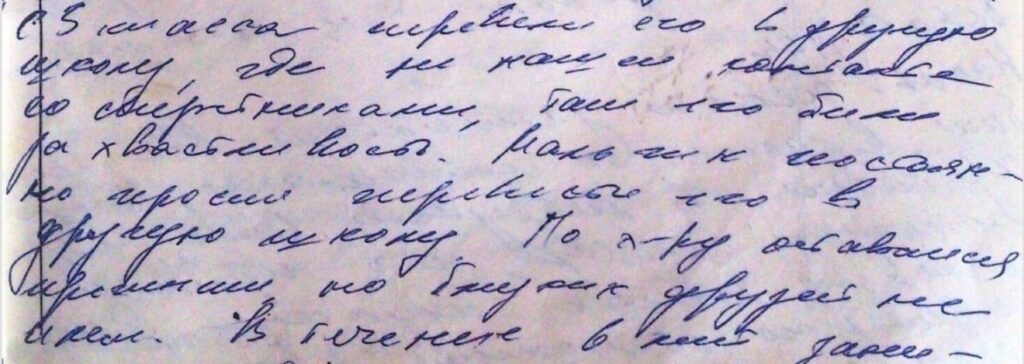 с 5 класса перевели его в другую
школу, где не нашел контакта
со сверстниками, там его били
за хвастливость. Мальчик постоян-
но просил перевести его в
другую школу. По х-ру оставался
прежним но близких друзей не
имел. В течение 6 лет зани-